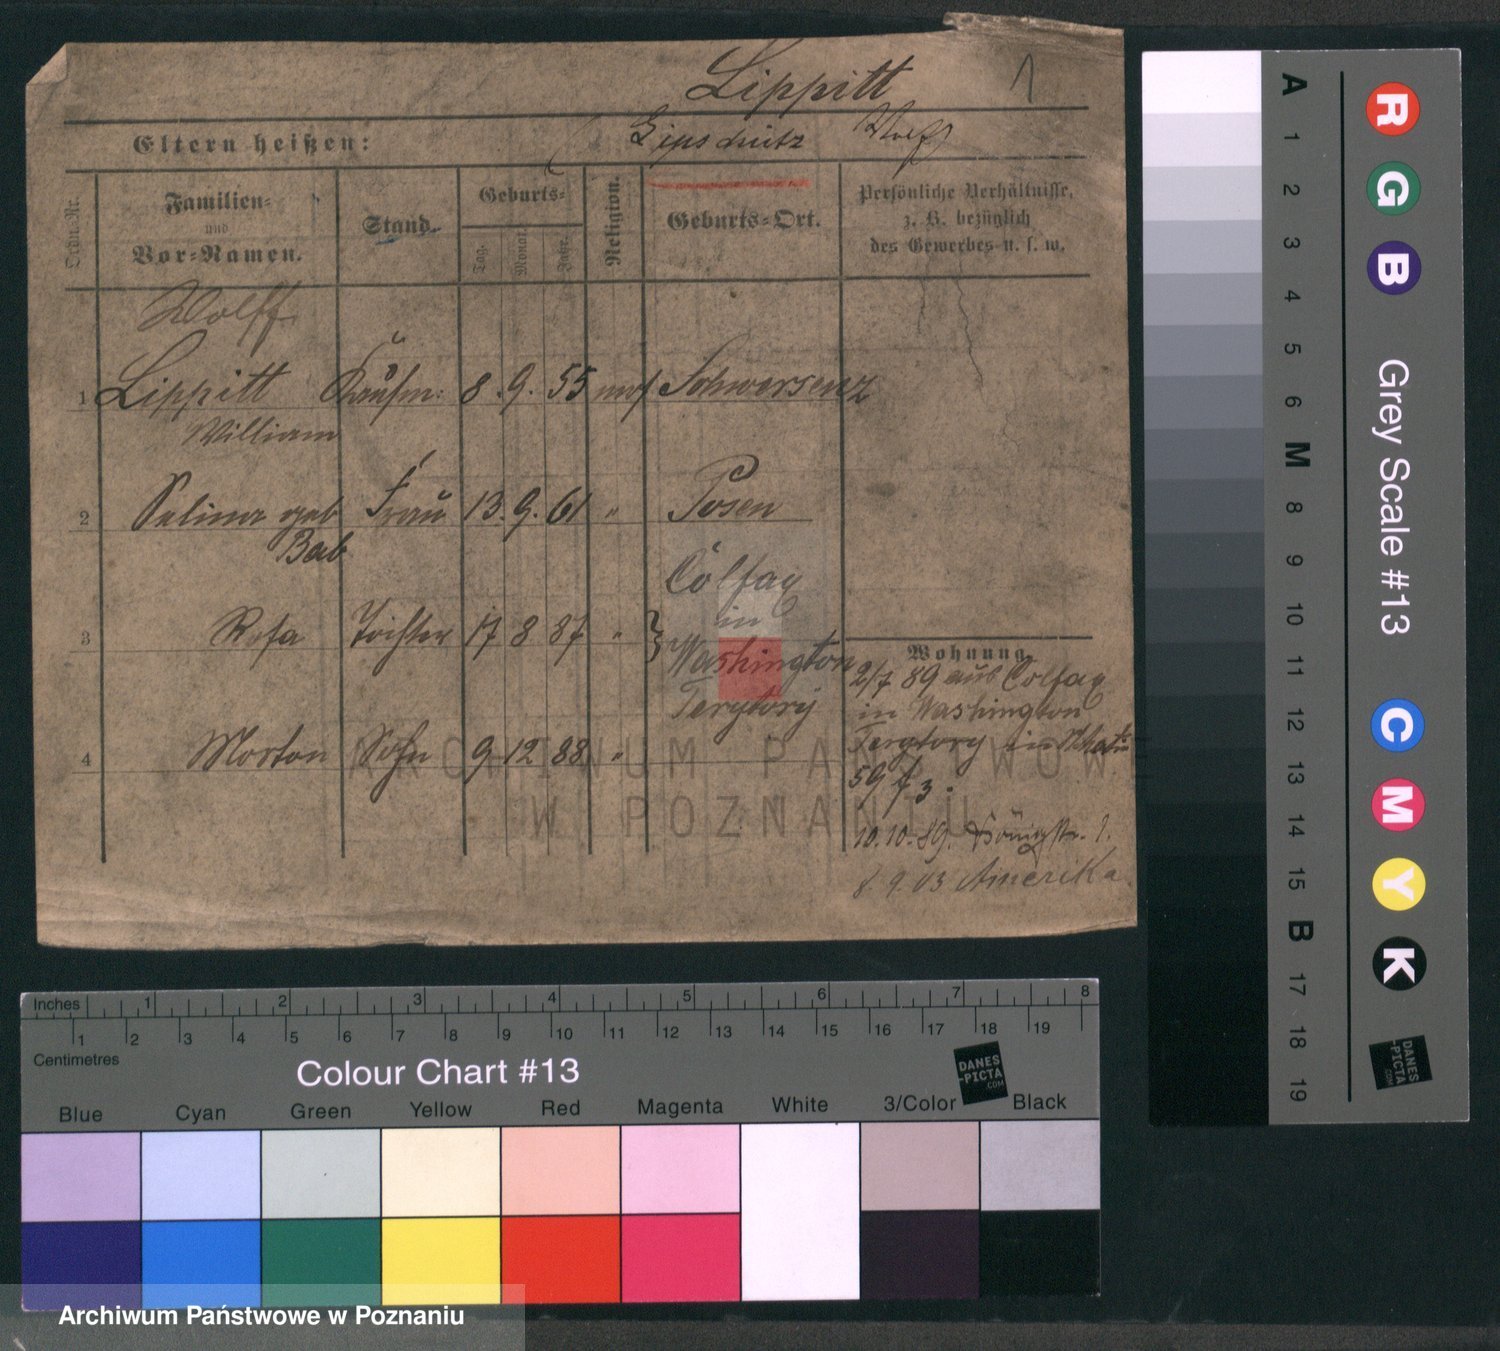 Lippitt 1
Eltern heißen: (Lipschütz Wolf)
Ordn. Nr.
Familien-
und
Vor-Namen.
Stand.
Geburts-
Tag.
Monat.
Jahr.
Religion.
Geburts-Ort.
Persönliche Verhältnisse,
z. B. bezüglich
des Gewerbes u. s. w.
Wolff
1 Lippitt Kaufm. 8. 9. 55 mos Schwersenz
William
2 Selina geb Frau 13. 9. 61 " Posen
Bab
Colfax
in
3 Rosa Tochter 17 8 87 " Washington
Terytory
4 Morton Sohn 9 12 88 "
Wohnung.
2/7 89 aus Colfax
in Washington
Tergtory in
59 f 3.
10.10.89.
8. 9. 03 Amerika
ARCHIWUM PAŃSTWOWE
W POZNANIU
Inches 1 2 3 4 5 6 7 8
1 2 3 4 5 6 7 8 9 10 11 12 13 14 15 16 17 18 19
Centimetres
Colour Chart #13
DANES
-PICTA
.COM
Blue Cyan Green Yellow Red Magenta White 3/Color Black
Archiwum Państwowe w Poznaniu
A 1 2 3 4 5 6 M 8 9 10 11 12 13 14 15 B 17 18 19
R G B
Grey Scale #13
C M Y K
DANES
-PICTA
.COM